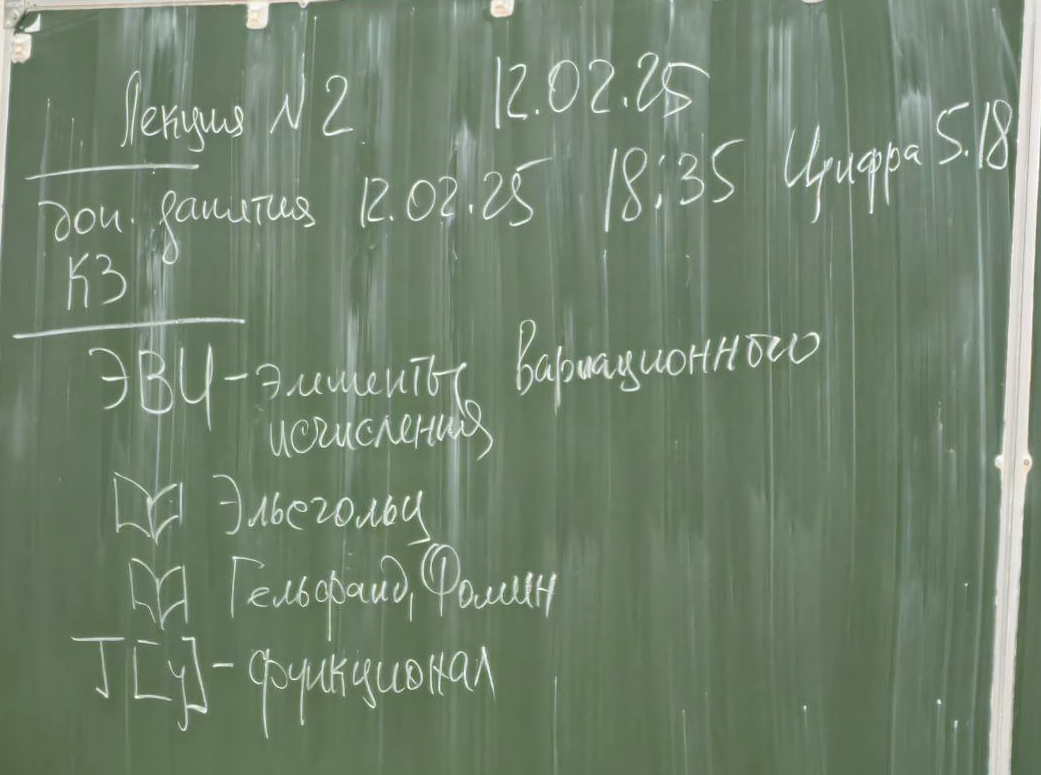 Лекция N2 12.02.25
доп. занятия 12.02.25 18:35 Цифра 5.18
КЗ
ЭВИ - элементы вариационного
исчисления
Эльсгольц
Гельфанд, Фомин
J[y] - функционал